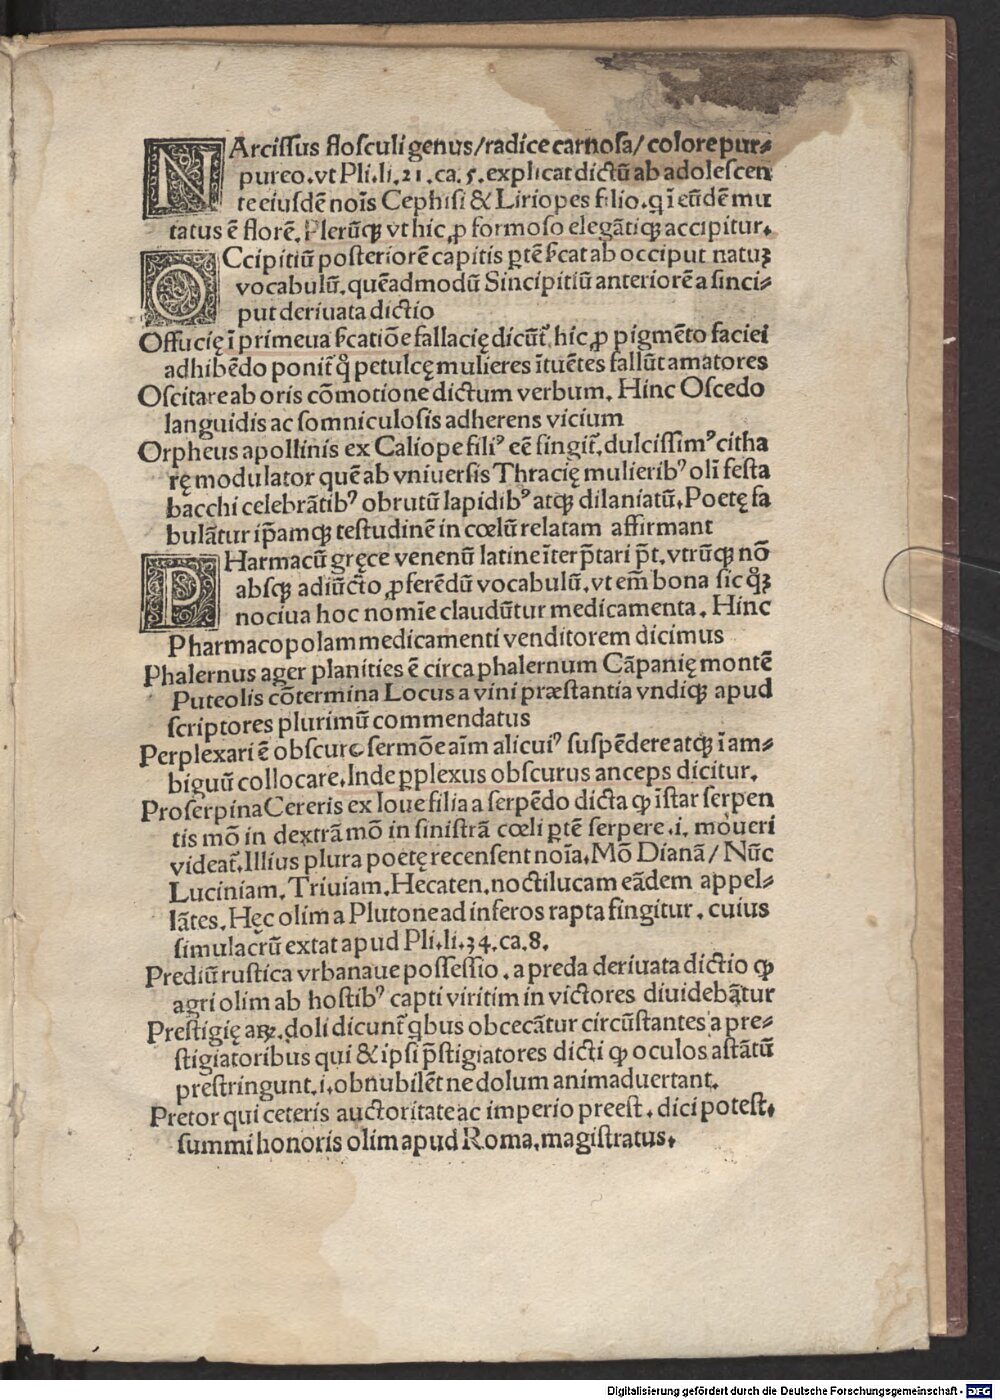 NArcissus flosculi genus/radice carnosa/ colore pur⸗
pureo. vt Pli. li. 21. ca. 5. explicat dictū ab adolescen
te eiusdē noīs Cephisi & Liriopes filio. q ī eūdē mu
tatus ē florē. Plerūqꝫ vt hic ꝓ formoso elegātiqꝫ accipitur.
OCcipitiū posteriorē capitis ꝑtē ſcat ab occiput natuꝫ
vocabulū. quēadmodū Sincipitiū anteriorē a sinci⸗
put deriuata dictio
Offucię ī primeua ſcatiōe fallacię dicūt̄ hic ꝓ pigmēto faciei
adhibēdo ponit̄ qͥ petulcę mulieres ītuētes fallūt amatores
Oscitare ab oris cōmotione dictum verbum. Hinc Oscedo
languidis ac somniculosis adherens vicium
Orpheus apollinis ex Caliope filiꝰ eē fingit̄. dulcissimꝰ citha
rę modulator quē ab vniuersis Thracię mulieribꝰ olī festa
bacchi celebrātibꝰ obrutū lapidibꝰ atqꝫ dilaniatū. Poetę fa
bulātur ip̄amqꝫ testudinē in cœlū relatam affirmant
PHarmacū gręce venenū latine īterp̄tari p̄t. vtrūqꝫ nō
absqꝫ adiūcto ꝓferēdū vocabulū. vt em̄ bona sic qͦꝫ
nociua hoc nomīe claudūtur medicamenta. Hinc
Pharmacopolam medicamenti venditorem dicimus
Phalernus ager planities ē circa phalernum Cāpanię montē
Puteolis cōtermina Locus a vini præstantia vndiqꝫ apud
scriptores plurimū commendatus
Perplexari ē obscuro sermōe aīm alicuiꝰ suspēdere atqꝫ ī am⸗
biguū collocare. Inde ꝑplexus obscurus anceps dicitur.
Proserpina Cereris ex Ioue filia a serpēdo dicta ꝙ īstar serpen
tis mō in dextrā mō in sinistrā cœli ꝑtē serpere .i. moueri
videat̄. Illius plura poetę recensent noīa. Mō Dianā/ Nūc
Luciniam. Triuiam. Hecaten. noctilucam eādem appel⸗
lātes. Hęc olim a Plutone ad inferos rapta fingitur. cuius
simulacrū extat apud Pli. li. 34. ca. 8.
Prediū rustica vrbanaue possessio. a preda deriuata dictio ꝙ
agri olim ab hostibꝰ capti viritim in victores diuidebātur
Prestigię aꝝ. doli dicunt̄ qͥbus obcecātur circūstantes a pre⸗
stigiatoribus qui & ipsi p̄stigiatores dicti ꝙ oculos astātū
prestringunt .i. obnubilēt ne dolum animaduertant.
Pretor qui ceteris auctoritate ac imperio preest. dici potest.
summi honoris olim apud Roma. magistratus.
Digitalisierung gefördert durch die Deutsche Forschungsgemeinschaft - DFG